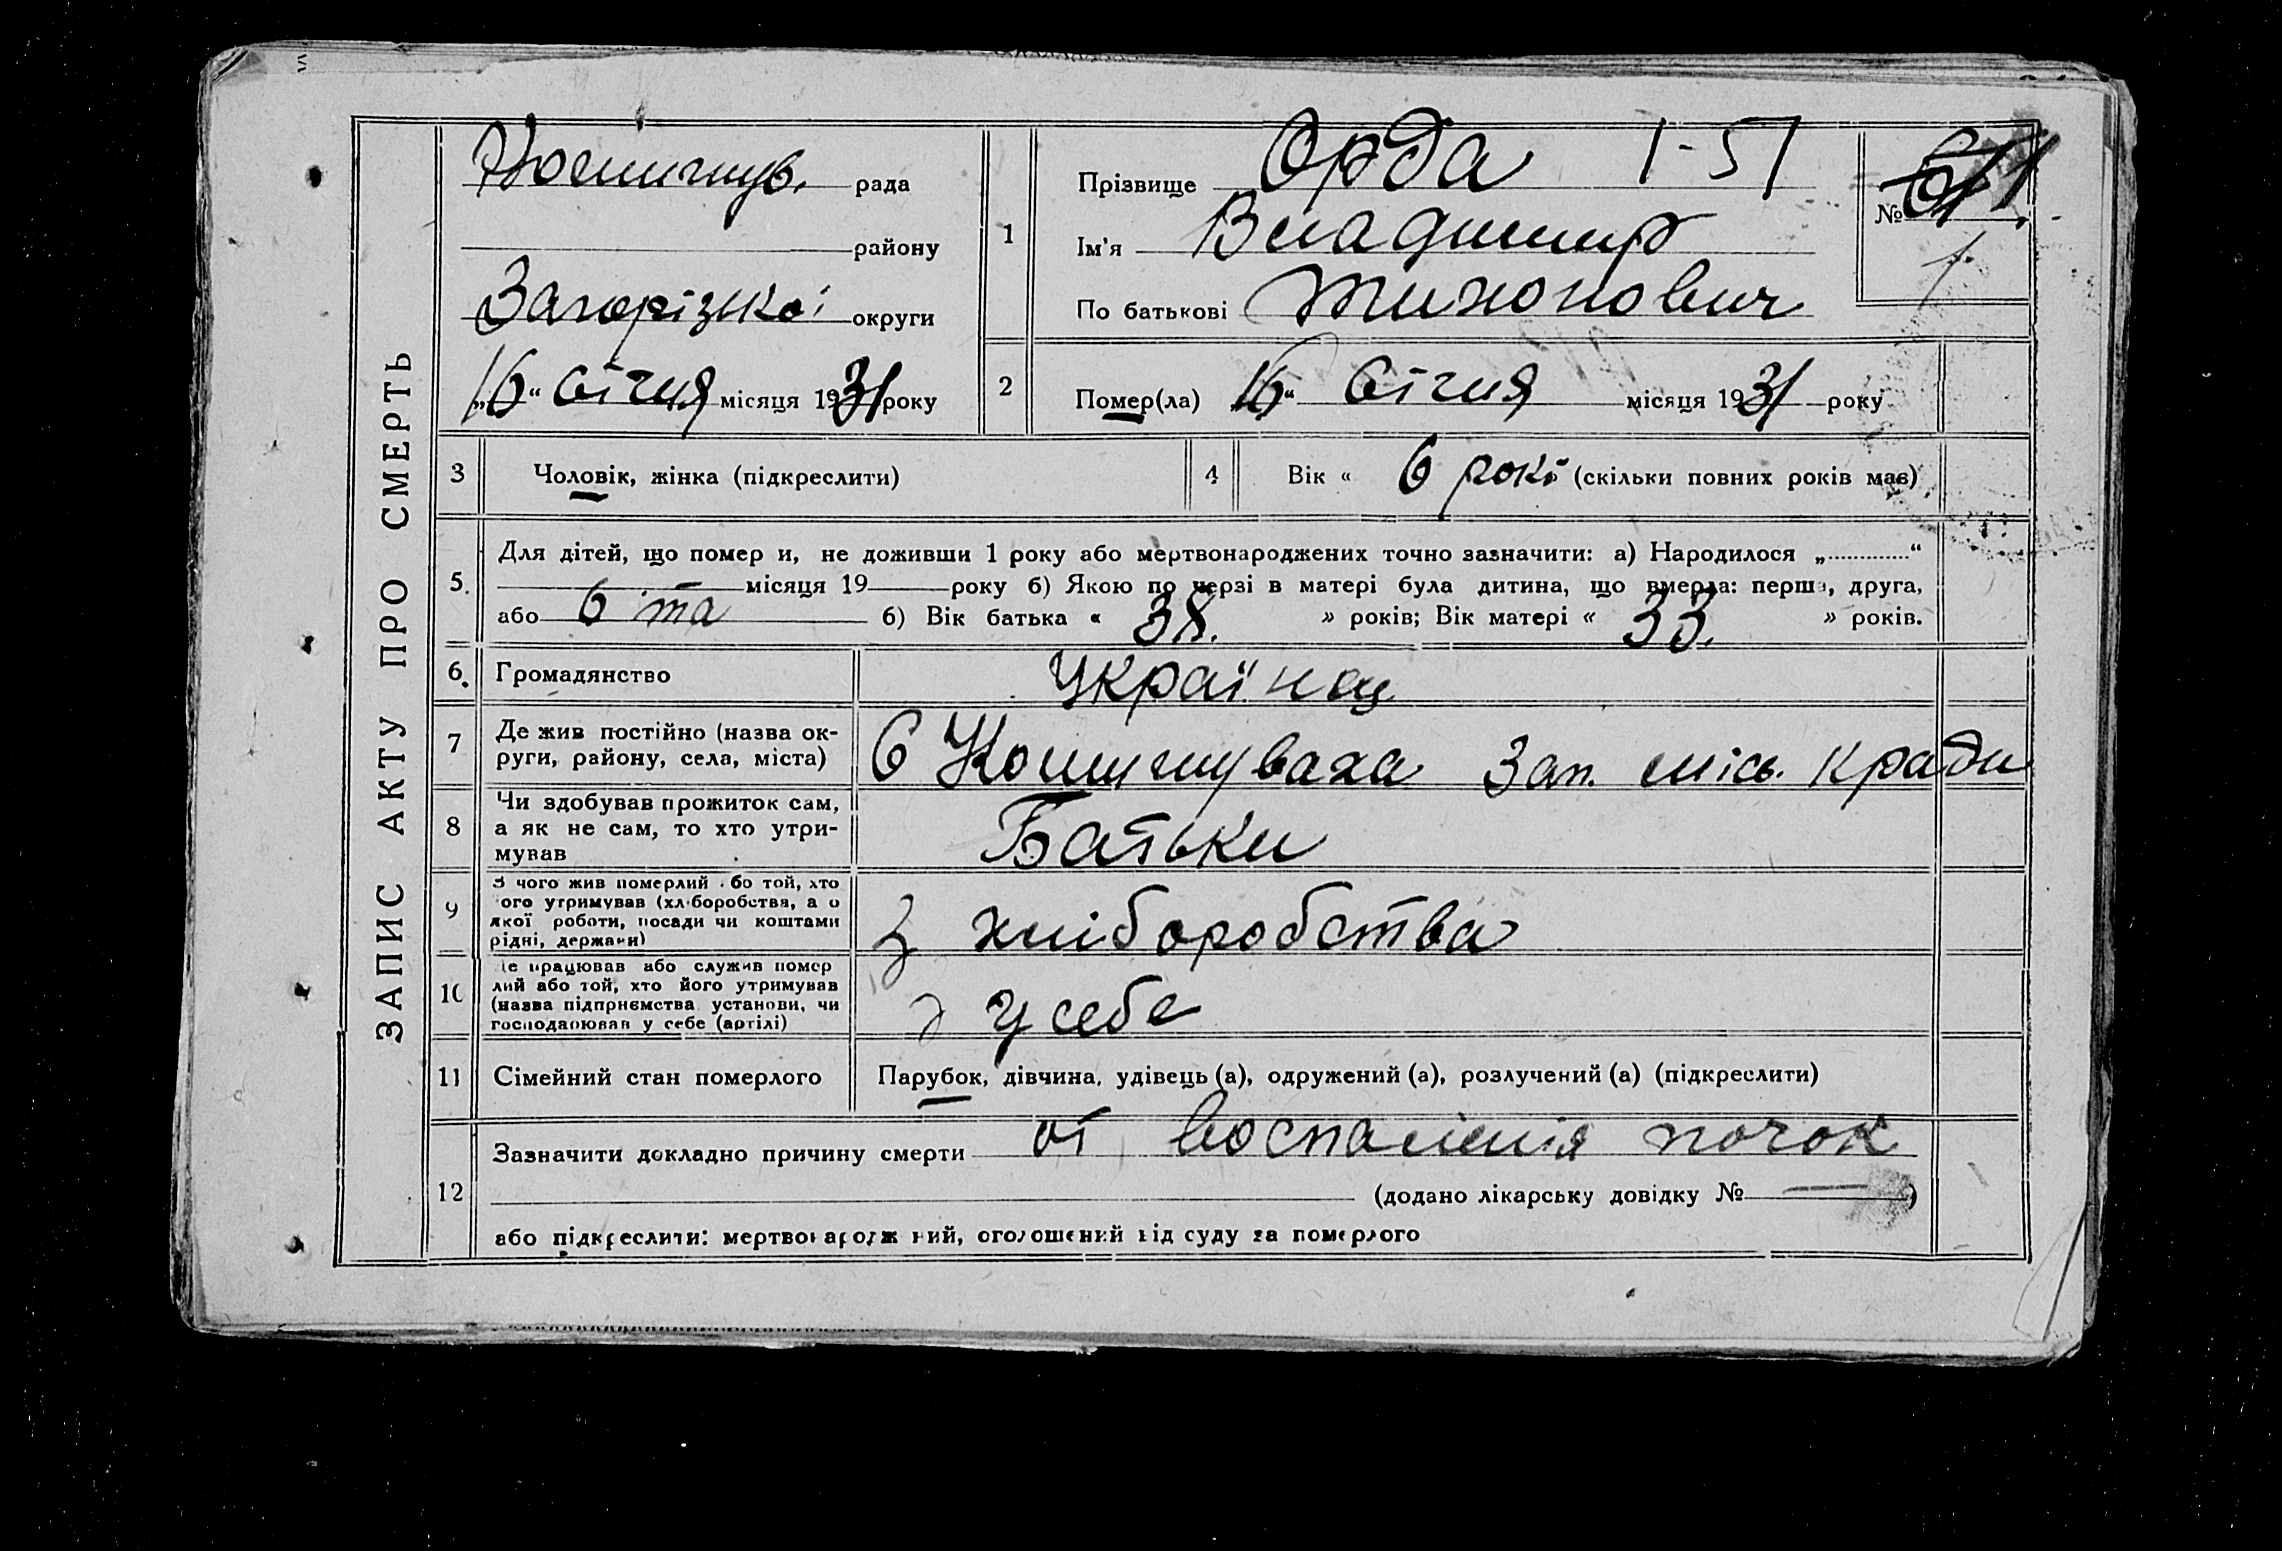 ЗАПИС АКТУ ПРО СМЕРТЬ
рада
району
округи
„16“ січня місяця 1931 року
1
Прізвище Орда 1-51
Ім'я Владимир
По батькові Тихонович
№
2
Помер(ла) „16“ січня місяця 1931 року
3 Чоловік, жінка (підкреслити)
4 Вік « 6 років (скільки повних років мав)
5. Для дітей, що помер и, не доживши 1 року або мертвонароджених точно зазначити: а) Народилося „..............“
місяця 19 року б) Якою по черзі в матері була дитина, що вмерла: перша, друга,
або 6 та б) Вік батька « 38. » років; Вік матері « 33. » років.
6. Громадянство Українец
7 Де жив постійно (назва ок-
руги, району, села, міста)
С Комишуваха Зап. місь. к ради
8 Чи здобував прожиток сам,
а як не сам, то хто утри-
мував
Батьки
9 З чого жив померлий або той, хто
ого утримував (хліборобства, а о
якої роботи, посади чи коштами
рідні, держави)
З хліборобства
10 Де працював або служив помер
лий або той, хто його утримував
(назва підприємства установи, чи
господарював у себе (артілі)
У себе
11 Сімейний стан померлого Парубок, дівчина, удівець (а), одружений (а), розлучений (а) (підкреслити)
12 Зазначити докладно причину смерти от воспаления почок
(додано лікарську довідку № — )
або підкреслити: мертвонароджений, оголошений від суду за померлого